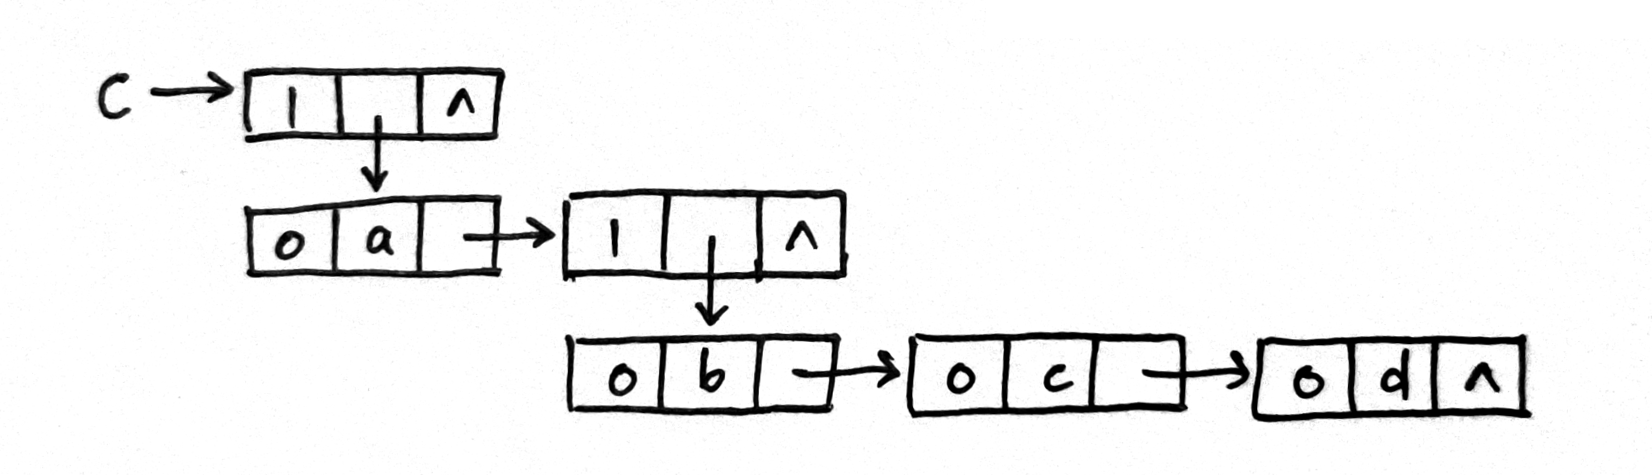 C 1 ^
0 a 1 ^
0 b 0 c 0 d ^